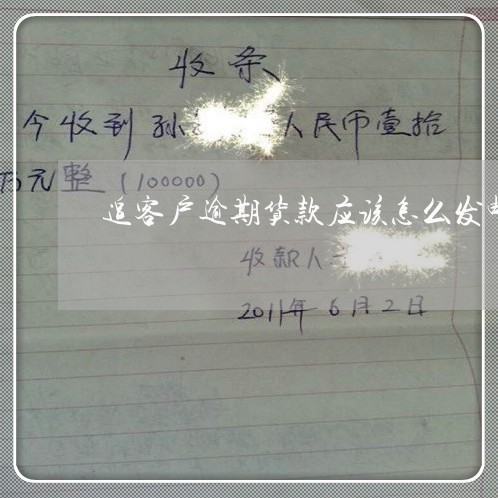 收条
今收到孙 人民币壹拾
万元整（100000）
追客户逾期货款应该怎么发
收款人
2011年6月2日